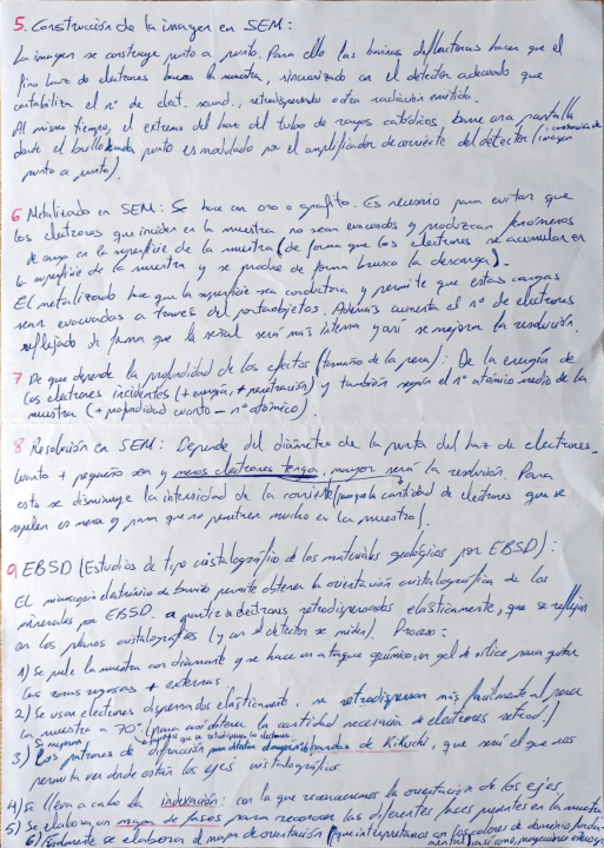 5. Construcción de la imagen en SEM:
La imagen se construye punto a punto. Para ello las bobinas deflectoras hacen que el
fino haz de electrones barra la muestra, sincronizado con el detector adecuado que
contabiliza el nº de elect. secund., retrodispersados u otra radiación emitida.
Al mismo tiempo, el extremo del haz del tubo de rayos catódicos barre una pantalla
donde el brillo de cada punto es modulado por el amplificador de corriente del detector (construcción de imagen
punto a punto).
6 Metalizado en SEM: Se hace con oro o grafito. Es necesario para evitar que
los electrones que inciden en la muestra no sean evacuados y produzcan fenómenos
de carga en la superficie de la muestra (de forma que los electrones se acumulan en
la superficie de la muestra y se produce de forma brusca la descarga).
El metalizado hace que la superficie sea conductora y permite que estas cargas
sean evacuadas a través del portaobjetos. Además aumenta el nº de electrones
reflejado de forma que la señal será más intensa y así se mejora la resolución.
7 De que depende la profundidad de los efectos (tamaño de la pera): De la energía de
los electrones incidentes (+ energía, + penetración) y también según el nº atómico medio de la
muestra (+ profundidad cuanto - nº atómico).
8 Resolución en SEM: Depende del diámetro de la punta del haz de electrones.
Cuanto + pequeño sea y menos electrones tenga, mayor será la resolución. Para
esto se disminuye la intensidad de la corriente (porque la cantidad de electrones que se
repelen es menor y para que no penetren mucho en la muestra).
9 EBSD (Estudios de tipo cristalográfico de los materiales geológicos por EBSD):
El microscopio electrónico de barrido permite obtener la orientación cristalográfica de los
minerales por EBSD. a partir de electrones retrodispersados elásticamente, que se reflejan
en los planos cristalográficos (y con el detector se miden). Proceso:
1) Se pule la muestra con diamante y se hace un ataque químico, en gel de sílice para quitar
las zonas rugosas + externas
2) Se usan electrones dispersados elásticamente. se retrodispersan más fácilmente al poner
la muestra a 70° (para así obtener la cantidad necesaria de electrones retrod.)
3) Los patrones de difracción para bandas de Kikuchi, que será el que nos
permita ver donde están los ejes cristalográficos
4) Se lleva a cabo la indexación: con la que reconocemos la orientación de los ejes.
5) Se elabora un mapa de fases para reconocer las diferentes fases presentes en la muestra
6) Finalmente se elabora el mapa de orientación (que interpretamos con los colores de dominio funda-
mental) así como, proyecciones estereog.